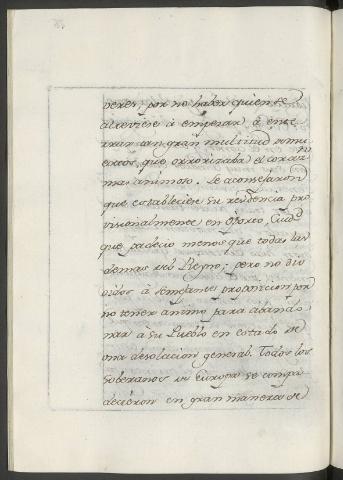 veres, por no haber quien se
atreviese á empezar á ente
rrar tan gran multitud de mu
ertos, que orrorizaba el corazon
mas animoso. Le aconsejaron
que estableciese su residencia pro
visionalmente en Oporto, Ciudad
que padecio menos que todas las
demas del Reyno; pero no dio
oidos á semejantes proposicion por
no tener animo para abando
nar á su Pueblo en estado de
una desolacion general. Todos los
soberanos de Europa se compa
decieron en gran manera de